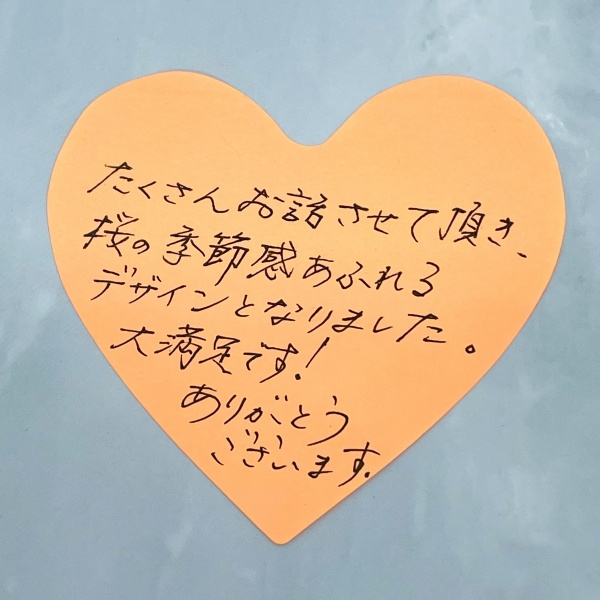 たくさんお話させて頂き、
桜の季節感あふれる
デザインとなりました。
大満足です!
ありがとう
ございます。